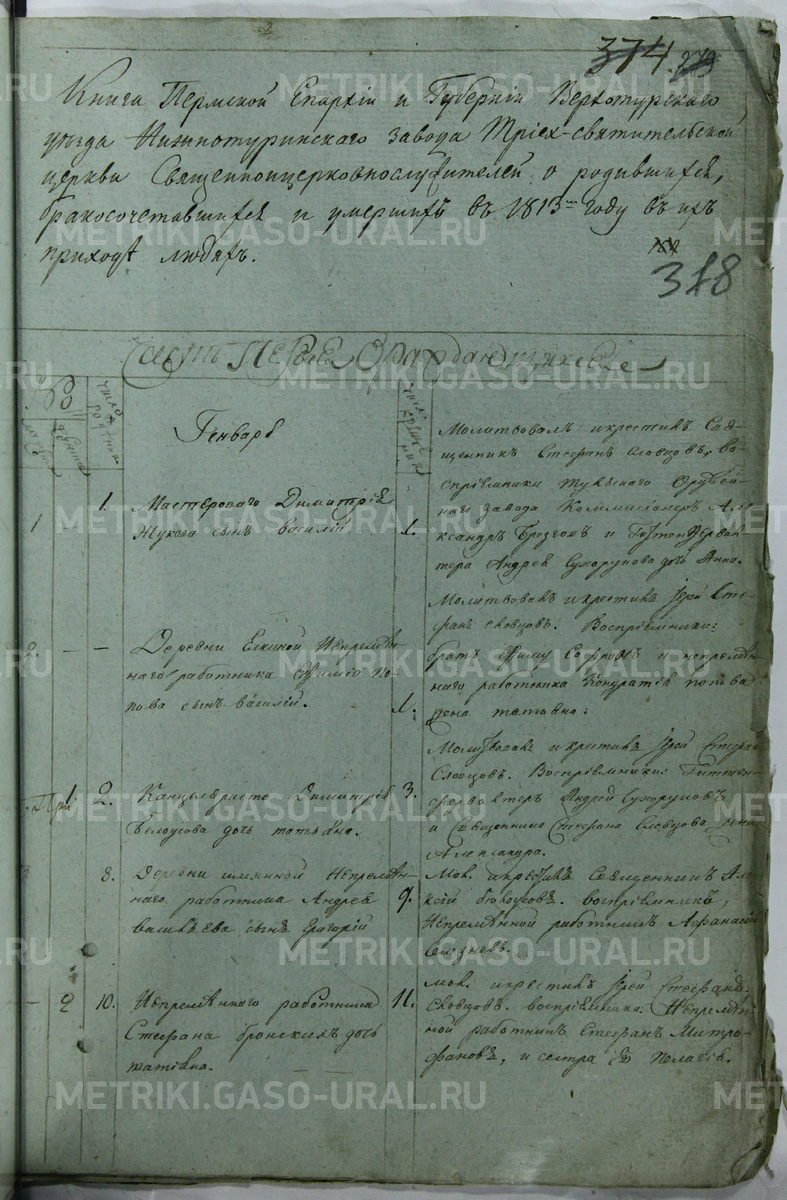 374. 279
Книга Пермской Епархіи и Губерніи Верхотурскаго
уѣзда Нижнотуринскаго завода Тріех-святительской
церкви Священноицерковнослужителей о родившихся,
бракосочетавшихся и умершихъ въ 1813-м году въ ихъ
приходѣ людяхъ.
318
Часть Первая О раждающихся
число рожденія
число крещенія
Генварь
1 1. Мастероваго Димитрія
Жукова сынъ Василій
1.
Молитвовалъ и крестилъ Свя-
щенникъ Стефанъ Словцовъ, во-
спріемники Тульнаго Оружей-
наго завода Коммисіонеръ Але-
ксандръ и Гиттенферваль-
тера Андрея Сухорукова дочь Анна.
2. — — Деревни Елкиной Непремѣн-
наго работника По-
пова сынъ Василій.
1.
Молитвовалъ и крестилъ Іерей Сте-
фанъ Словцовъ. Воспріемники:
братъ ему и непремѣн-
наго работника Кондратія Попова
жена Татьяна:
1. 2. Канцеляриста Димитрія
Белоусова дочь Татьяна.
3.
Молитвовалъ и крестилъ Іерей Стефанъ
Словцовъ. Воспріемники: Гиттен-
фервалтеръ Андрей Сухоруковъ
и Священника Стефана Словцова жена
Александра.
3 8. Деревни имянной Непремѣн-
наго работника Андрея
сынъ Григорій
9.
Мол. и крестилъ Священникъ Але-
ксій воспріемникъ,
Непремѣнной работникъ Афанасій
Селзневъ.
— 2 10. Непремѣннаго работника
Стефана Бронскихъ дочь
Татіяна.
11.
Мол. и крестилъ Іерей Стефанъ
Словцовъ. воспріемники: Непремѣн-
ной работникъ Стефанъ Митро-
фановъ, и сестра Ево Пелагія.
METRIKI.GASO-URAL.RU